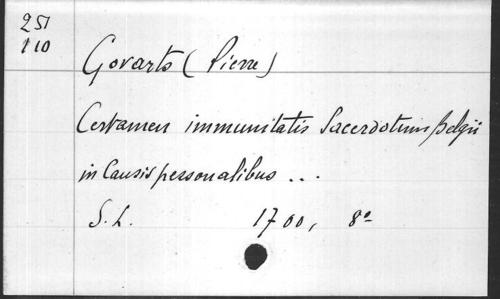 251
110
Govarts (Pierre)
Certamen immunitatis Sacerdotum Belgii
in Causis personalibus ...
S. L. 1700, 8º